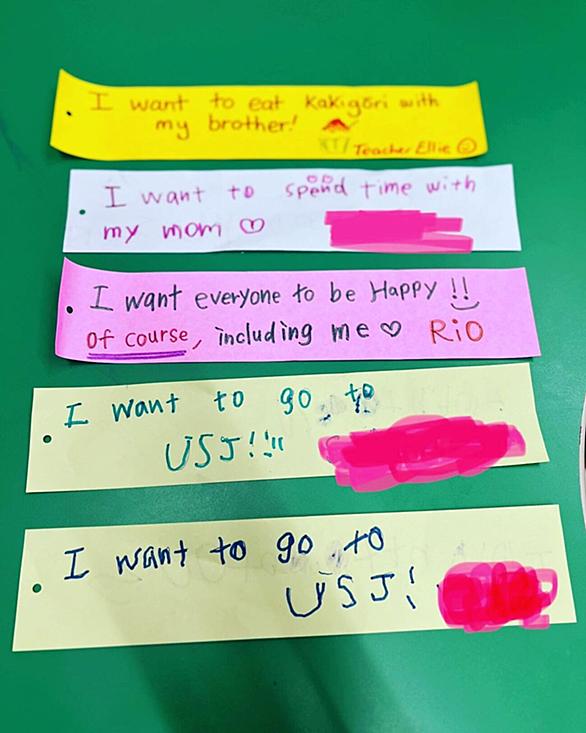 I want to eat Kakigōri with
my brother!
Teacher Ellie
I want to spend time with
my mom ♡
I want everyone to be Happy !!
Of course, including me ♡ RiO
I want to go to
USJ!!!!
I want to go to
USJ!